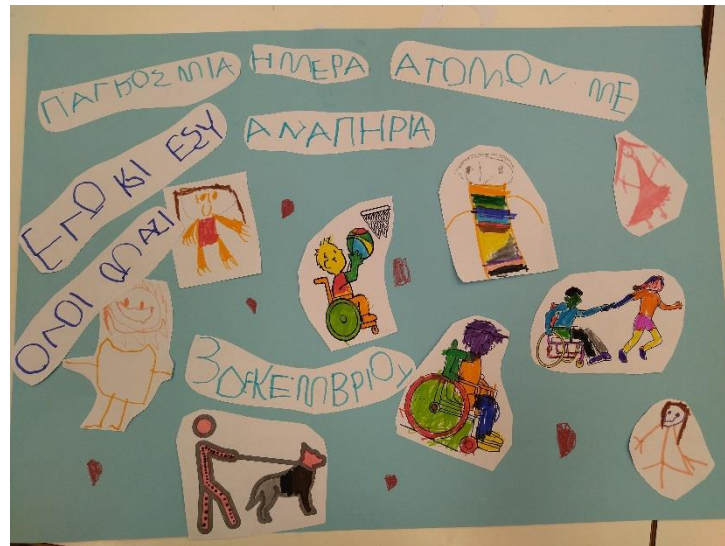 ΠΑΓΚΟΣΜΙΑ ΗΜΕΡΑ ΑΤΟΜΩΝ ΜΕ
ΑΝΑΠΗΡΙΑ
ΕΓΩ ΚΙ ΕΣΥ
ΟΛΟΙ ΜΑΖΙ
3 ΔΕΚΕΜΒΡΙΟΥ